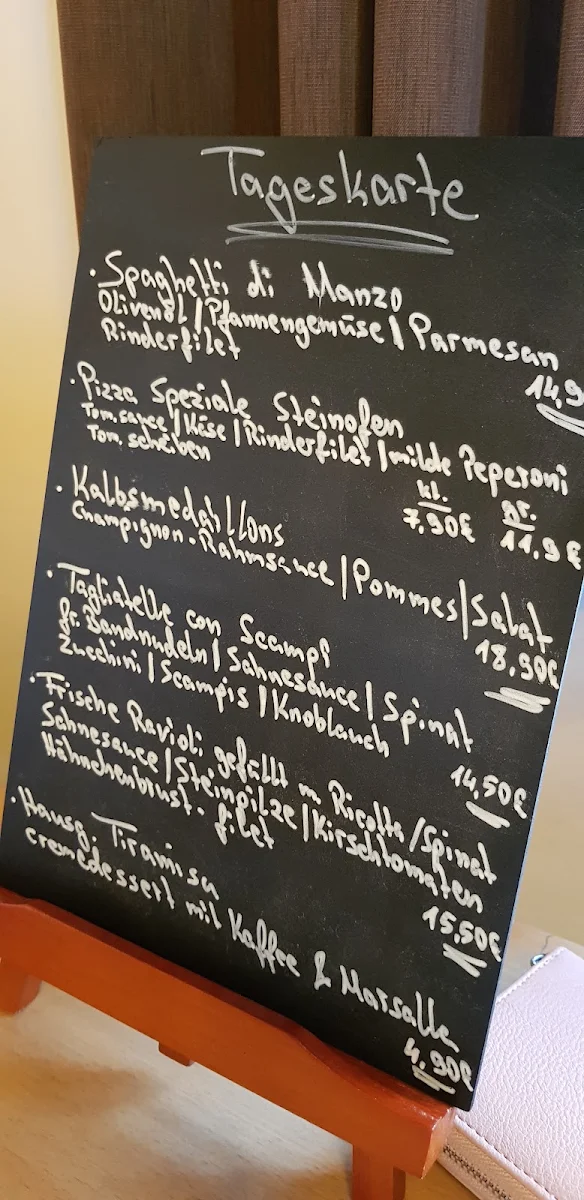 Tageskarte
· Spaghetti di Manzo
Olivenöl / Pfannengemüse / Parmesan
Rinderfilet
14,9
· Pizza Speziale Steinofen
Tom.sauce / Käse / Rinderfilet / milde Peperoni
Tom. scheiben
kl. gr.
7,90€ 11,9€
· Kalbsmedaillons
Champignon-Rahmsauce / Pommes / Salat
18,90€
· Tagliatelle con Scampi
gr. Bandnudeln / Sahnesauce / Spinat
Zucchini / Scampis / Knoblauch
14,50€
· Frische Ravioli gefüllt m. Ricotta / Spinat
Sahnesauce / Steinpilze / Kirschtomaten
Hähnchenbrust-filet
15,50€
· Hausg. Tiramisu
cremedessert mit Kaffee & Marsalla
4,90€